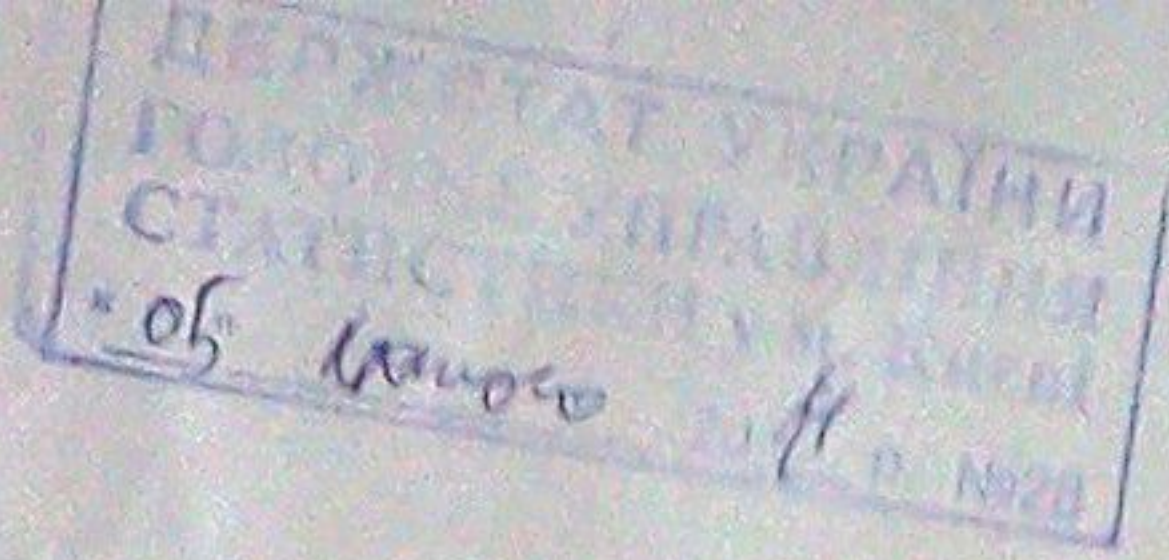 ДЕРЖСТАТ УКРАЇНИ
ГОЛОВНЕ УПРАВЛІННЯ
СТАТИСТИКИ У м. Києві
"05" 11 р. №20